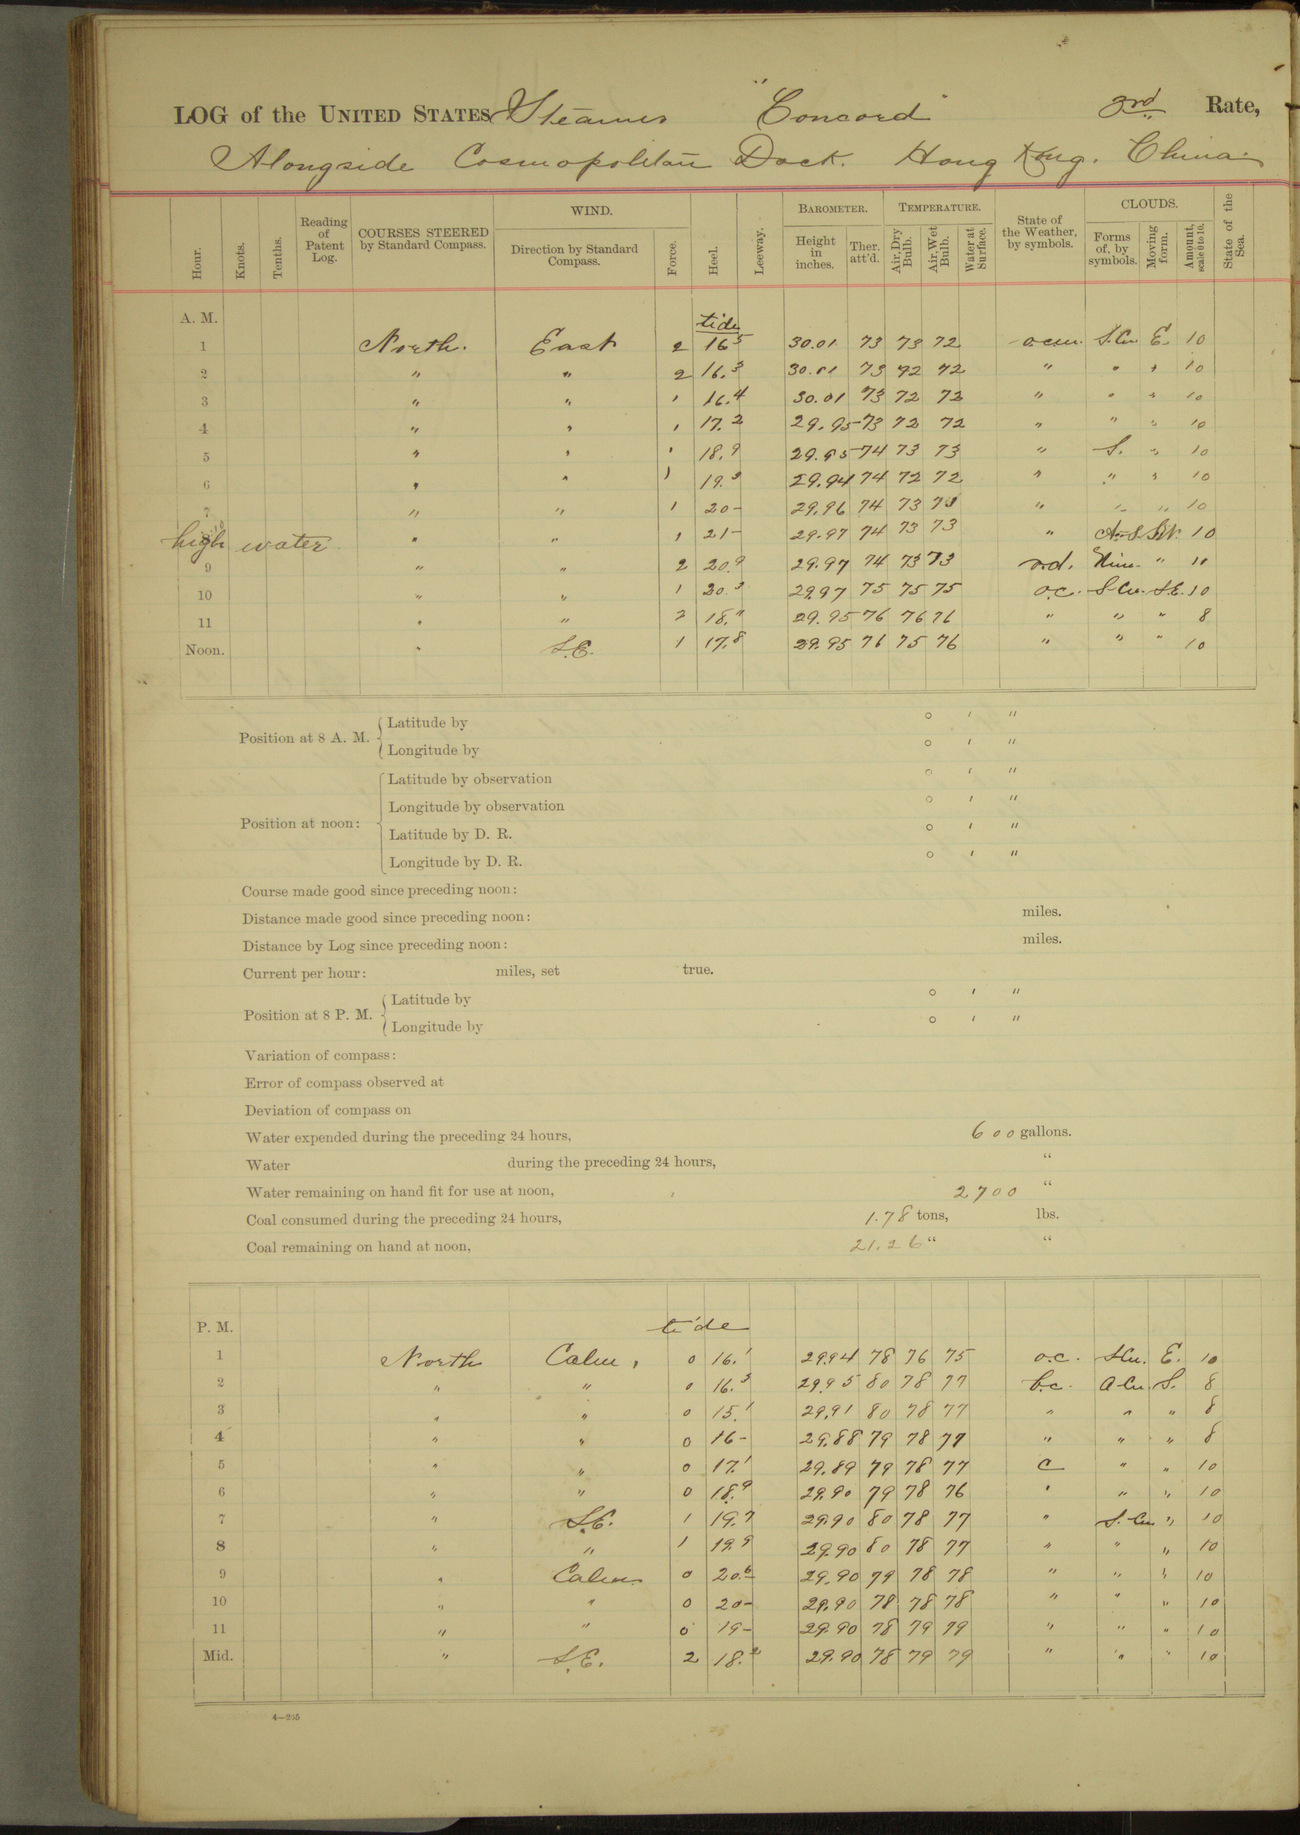 LOG of the UNITED STATES Steamer "Concord" 3rd Rate,
Alongside Cosmopolitan Dock. Hong Kong. China.
Hour. Knots. Tenths. Reading of Patent Log. COURSES STEERED by Standard Compass. WIND. Direction by Standard Compass. Force. Heel. Leeway. BAROMETER. Height in inches. Ther. att'd. TEMPERATURE. Air, Dry Bulb. Air, Wet Bulb. Water at Surface. State of the Weather, by symbols. CLOUDS. Forms of, by symbols. Moving form. Amount, scale 0 to 10. State of the Sea.
A. M. tide
1 North. East 2 16.5 30.01 73 73 72 S.Cu. E. 10
2 " " 2 16.3 30.01 73 72 72 " " " 10
3 " " 1 16.4 30.01 73 72 72 " " " 10
4 " " 1 17.2 29.95 73 72 72 " " " 10
5 " " 1 18.9 29.95 74 73 73 " S. " 10
6 " " 1 19.3 29.94 74 72 72 " " " 10
7 " " 1 20- 29.96 74 73 73 " " " 10
high water " " 1 21- 29.97 74 73 73 " 10
9 " " 2 20.9 29.97 74 73 73 o.d. Nim. " 10
10 " " 1 20.3 29.97 75 75 75 o.c. S.Cu. S.E. 10
11 " " 2 18." 29.95 76 76 76 " " " 8
Noon. " S.E. 1 17.8 29.95 76 75 76 " " " 10
Position at 8 A. M. Latitude by ° ′ ″
Longitude by ° ′ ″
Position at noon: Latitude by observation ° ′ ″
Longitude by observation ° ′ ″
Latitude by D. R. ° ′ ″
Longitude by D. R. ° ′ ″
Course made good since preceding noon:
Distance made good since preceding noon: miles.
Distance by Log since preceding noon: miles.
Current per hour: miles, set true.
Position at 8 P. M. Latitude by ° ′ ″
Longitude by ° ′ ″
Variation of compass:
Error of compass observed at
Deviation of compass on
Water expended during the preceding 24 hours, 600 gallons.
Water during the preceding 24 hours, "
Water remaining on hand fit for use at noon, 2700 "
Coal consumed during the preceding 24 hours, 1.78 tons, lbs.
Coal remaining on hand at noon, 21.26 " "
P. M. tide
1 North Calm, 0 16.1 29.94 78 76 75 o.c. S.Cu. E. 10
2 " " 0 16.3 29.95 80 78 77 b.c. A.Cu. S. 8
3 " " 0 15.1 29.91 80 78 77 " " " 8
4 " " 0 16- 29.88 79 78 77 " " " 8
5 " " 0 17.1 29.89 79 78 77 c " " 10
6 " " 0 18.9 29.90 79 78 76 " " " 10
7 " S.E. 1 19.7 29.90 80 78 77 " S.Cu " 10
8 " " 1 19.9 29.90 80 78 77 " " " 10
9 " Calm. 0 20.6 29.90 79 78 78 " " " 10
10 " " 0 20- 29.90 78 78 78 " " " 10
11 " " 0 19- 29.90 78 79 79 " " " 10
Mid. " S.E. 2 18.2 29.90 78 79 79 " " " 10
4—265